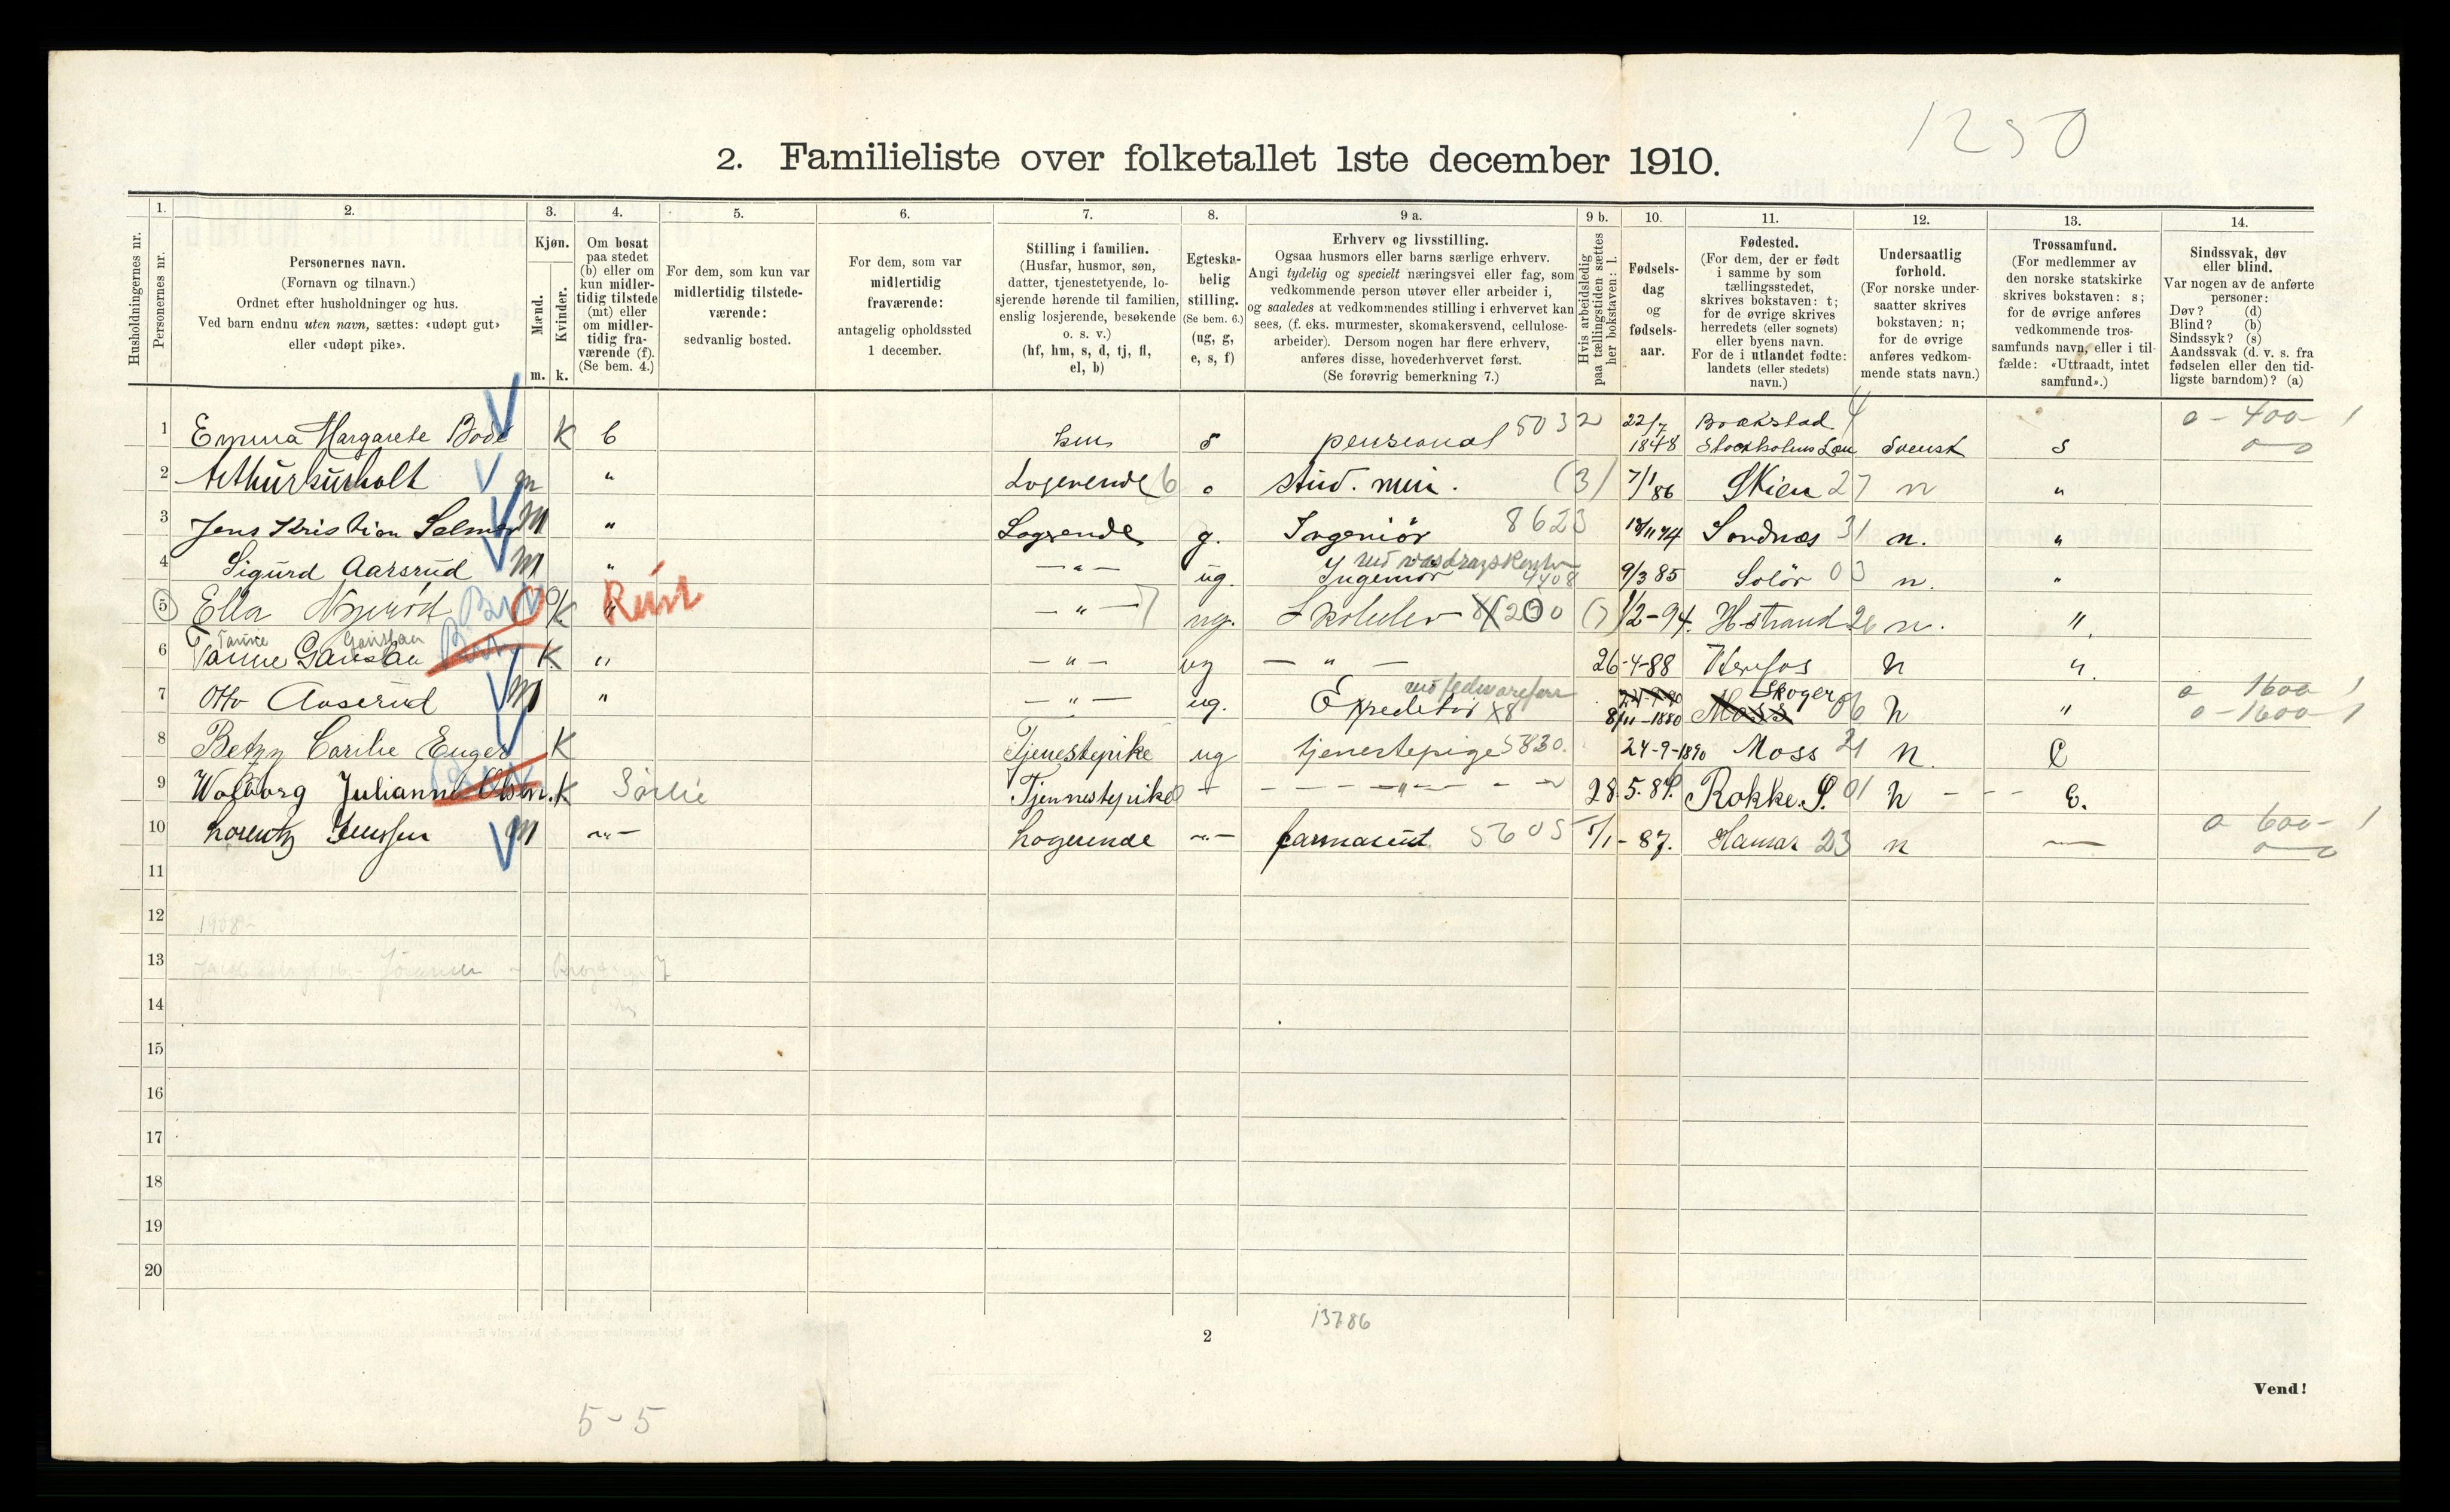 1250
2. Familieliste over folketallet 1ste december 1910.
Husholdningernes nr.
1. Personernes nr.
2. Personernes navn. (Fornavn og tilnavn.) Ordnet efter husholdninger og hus. Ved barn endnu uten navn, sættes: «udøpt gut» eller «udøpt pike».
3. Kjøn. Mænd. m. Kvinder. k.
4. Om bosat paa stedet (b) eller om kun midlertidig tilstede (mt) eller om midlertidig fraværende (f). (Se bem. 4.)
5. For dem, som kun var midlertidig tilstedeværende: sedvanlig bosted.
6. For dem, som var midlertidig fraværende: antagelig opholdssted 1 december.
7. Stilling i familien. (Husfar, husmor, søn, datter, tjenestetyende, losjerende hørende til familien, enslig losjerende, besøkende o. s. v.) (hf, hm, s, d, tj, fl, el, b)
8. Egteskabelig stilling. (Se bem. 6.) (ug, g, e, s, f)
9 a. Erhverv og livsstilling. Ogsaa husmors eller barns særlige erhverv. Angi tydelig og specielt næringsvei eller fag, som vedkommende person utøver eller arbeider i, og saaledes at vedkommendes stilling i erhvervet kan sees, (f. eks. murmester, skomakersvend, cellulosearbeider). Dersom nogen har flere erhverv, anføres disse, hovederhvervet først. (Se forøvrig bemerkning 7.)
9 b. Hvis arbeidsledig paa tællingstiden sættes her bokstaven: l.
10. Fødselsdag og fødselsaar.
11. Fødested. (For dem, der er født i samme by som tællingsstedet, skrives bokstaven: t; for de øvrige skrives herredets (eller sognets) eller byens navn. For de i utlandet fødte: landets (eller stedets) navn.)
12. Undersaatlig forhold. (For norske undersaatter skrives bokstaven: n; for de øvrige anføres vedkommende stats navn.)
13. Trossamfund. (For medlemmer av den norske statskirke skrives bokstaven: s; for de øvrige anføres vedkommende trossamfunds navn, eller i tilfælde: «Uttraadt, intet samfund».)
14. Sindssvak, døv eller blind. Var nogen av de anførte personer: Døv? (d) Blind? (b) Sindssyk? (s) Aandssvak (d. v. s. fra fødselen eller den tidligste barndom)? (a)
1 Emma Margarete Bode K b hm s pensionat 5032 22/7 1848 Stockholms Län Svensk s 0-400- 1
2 Arthur m " Logerende 6 stud. min. (3) 7/1 86 Skien 27 n "
3 Jens Kristian Selmer M " Logerende g. Ingeniör 8623 18/11 74 Sandnæs 31 n. "
4 Sigurd Aarsrud M " — " — ug. Ingeniör 4408 9/3 85 Solör 03 n. "
5 Ella K " — " — 7 ug. 200 (7) 1/2-94. H-strand 26 n. "
6 K " — " — ug — " — 26-4-88 n "
7 Otto Aaserud M " — " — ug. Expeditör 8/11-1880 Moss Skoger 06 n " 0-1600- 1
0-1600- 1
8 Betzy Enger K Tjenestepike ug tjenestepige 5830. 24-9-1890 Moss 21 n.
9 Walborg Julianne Olsen. K Tjennestepike — " — 28.5.89. Rokke. S. 01 n E.
10 Lorentz Jenssen M —"— Logerende —"— farmaceut 5605 5/1-87. Hamar 23 n — 0 600- 1
11
12 1908-
13
14
15
16
17
18
19
20
13786
2
Vend!
5-5